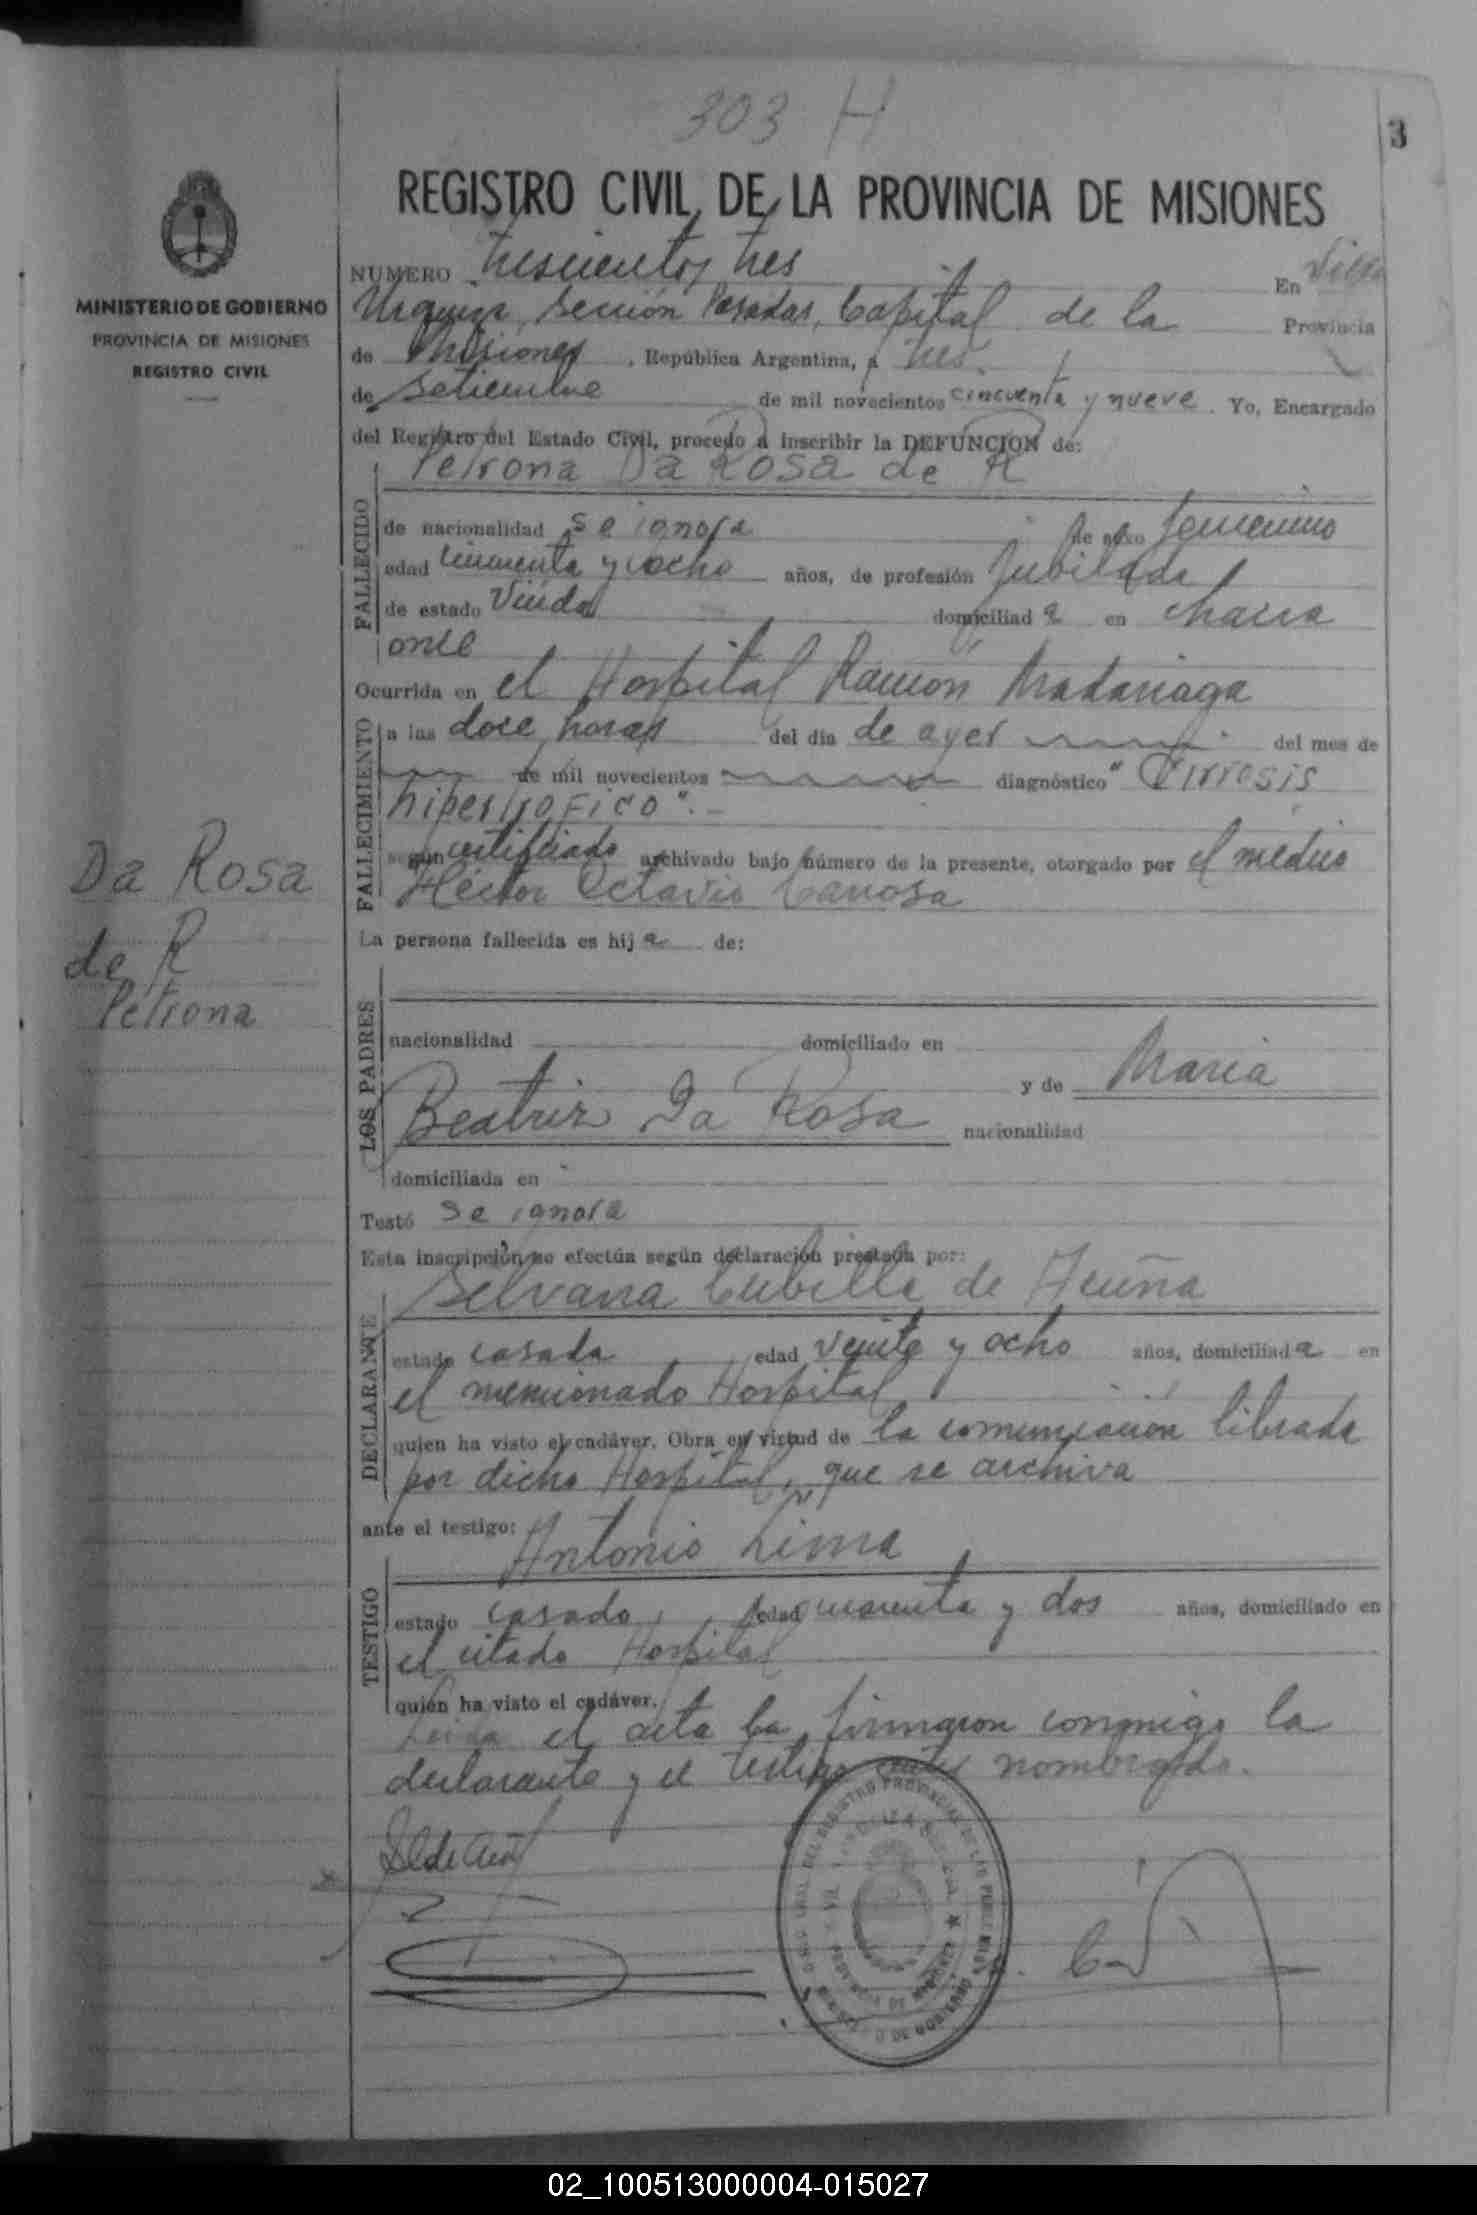 303 H
3
REGISTRO CIVIL DE LA PROVINCIA DE MISIONES
MINISTERIO DE GOBIERNO
PROVINCIA DE MISIONES
REGISTRO CIVIL
NUMERO trescientos tres En Villa
Urquiza, Sección Posadas, Capital de la Provincia
de Misiones, República Argentina, a tres
de Setiembre de mil novecientos cincuenta y nueve. Yo, Encargado
del Registro del Estado Civil, procedo a inscribir la DEFUNCION de:
Petrona Da Rosa de R
FALLECIDO
de nacionalidad se ignora de sexo femenino
edad cincuenta y ocho años, de profesión Jubilada
de estado Viuda domiciliada en chacra
once
Ocurrida en el Hospital Ramón Madariaga
FALLECIMIENTO
a las doce horas del día de ayer del mes de
de mil novecientos diagnóstico "Cirrosis
hipertrofico".-
según certificado archivado bajo número de la presente, otorgado por el médico
Héctor Octavio Canosa
Da Rosa
de R
Petrona
La persona fallecida es hija de:
LOS PADRES
nacionalidad domiciliado en
y de Maria
Beatriz Da Rosa nacionalidad
domiciliada en
Testó se ignora
Esta inscripción se efectúa según declaración prestada por:
Selvana Cubilla de Acuña
DECLARANTE
estado casada edad veinte y ocho años, domiciliada en
el mencionado Hospital
quien ha visto el cadáver. Obra en virtud de la comunicación librada
por dicho Hospital, que se archiva
ante el testigo:
Antonio Lima
TESTIGO
estado casado, edad cuarenta y dos años, domiciliado en
el citado Hospital
quién ha visto el cadáver.
Leida el acta la firmaron conmigo la
declarante y el testigo antes nombrado.
PROVINCIA DE MISIONES
02_100513000004-015027